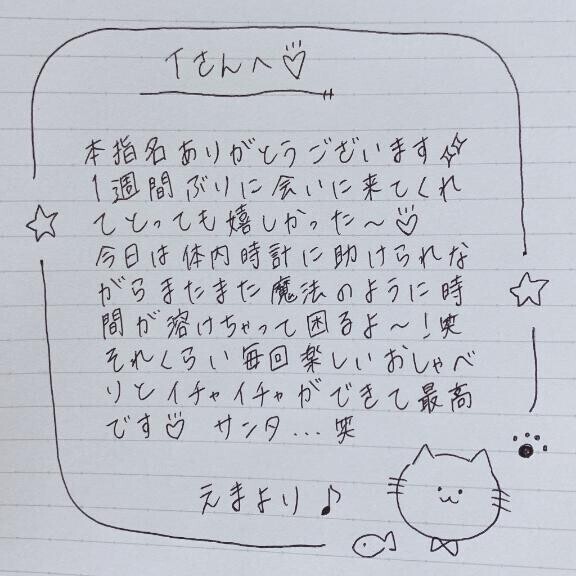 Tさんへ♡
本指名ありがとうございます✨
1週間ぶりに会いに来てくれ
てとっても嬉しかった〜♡
今日は体内時計に助けられな
がらまたまた魔法のように時
間が溶けちゃって困るよ〜！笑
それくらい毎回楽しいおしゃべ
りとイチャイチャができて最高
です♡ サンタ...笑
えまより♪